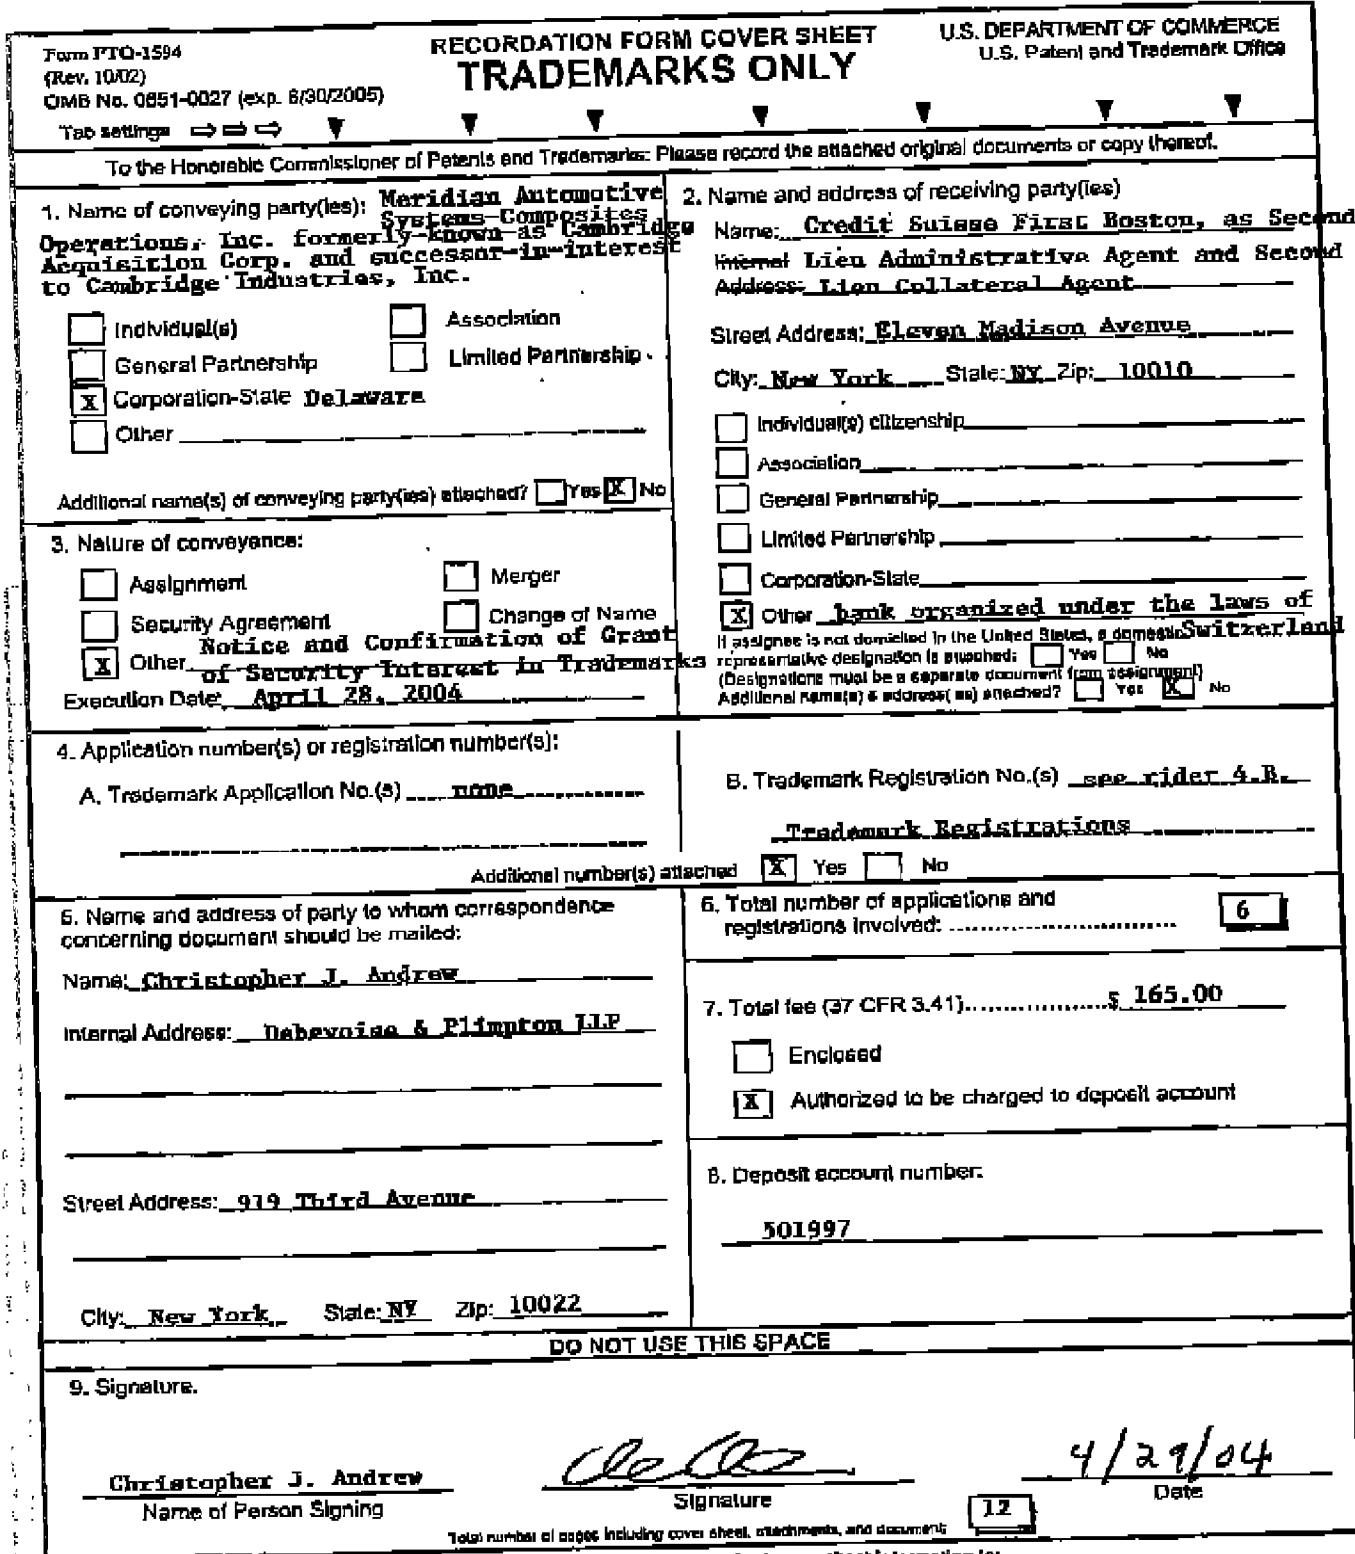 Form PTO-1594
(Rev. 10/02)
OMB No. 0651-0027 (exp. 6/30/2005)
Tab settings
RECORDATION FORM COVER SHEET
TRADEMARKS ONLY
U.S. DEPARTMENT OF COMMERCE
U.S. Patent and Trademark Office
To the Honorable Commissioner of Patents and Trademarks: Please record the attached original documents or copy thereof.
1. Name of conveying party(ies): Meridian Automotive
Systems-Composites
Operations, Inc. formerly known as Cambridge
Acquisition Corp. and successor-in-interest
to Cambridge Industries, Inc.
Individual(s)
Association
General Partnership
Limited Partnership
X Corporation-State Delaware
Other
Additional name(s) of conveying party(ies) attached? Yes X No
2. Name and address of receiving party(ies)
Name: Credit Suisse First Boston, as Second
Internal Lien Administrative Agent and Second
Address: Lien Collateral Agent
Street Address: Eleven Madison Avenue
City: New York State: NY Zip: 10010
Individual(s) citizenship
Association
General Partnership
Limited Partnership
Corporation-State
X Other bank organized under the laws of
Switzerland
If assignee is not domiciled in the United States, a domestic
representative designation is attached: Yes No
(Designations must be a separate document from assignment)
Additional name(s) & address(es) attached? Yes X No
3. Nature of conveyance:
Assignment
Merger
Security Agreement
Change of Name
X Other Notice and Confirmation of Grant
of Security Interest in Trademarks
Execution Date: April 28, 2004
4. Application number(s) or registration number(s):
A. Trademark Application No.(s) none
B. Trademark Registration No.(s) see rider 4.B.
Trademark Registrations
Additional number(s) attached X Yes No
5. Name and address of party to whom correspondence
concerning document should be mailed:
Name: Christopher J. Andrew
Internal Address: Debevoise & Plimpton LLP
Street Address: 919 Third Avenue
City: New York State: NY Zip: 10022
6. Total number of applications and
registrations involved: 6
7. Total fee (37 CFR 3.41) $ 165.00
Enclosed
X Authorized to be charged to deposit account
8. Deposit account number:
501997
DO NOT USE THIS SPACE
9. Signature.
Christopher J. Andrew
Name of Person Signing
Signature
4/29/04
Date
Total number of pages including cover sheet, attachments, and document: 12